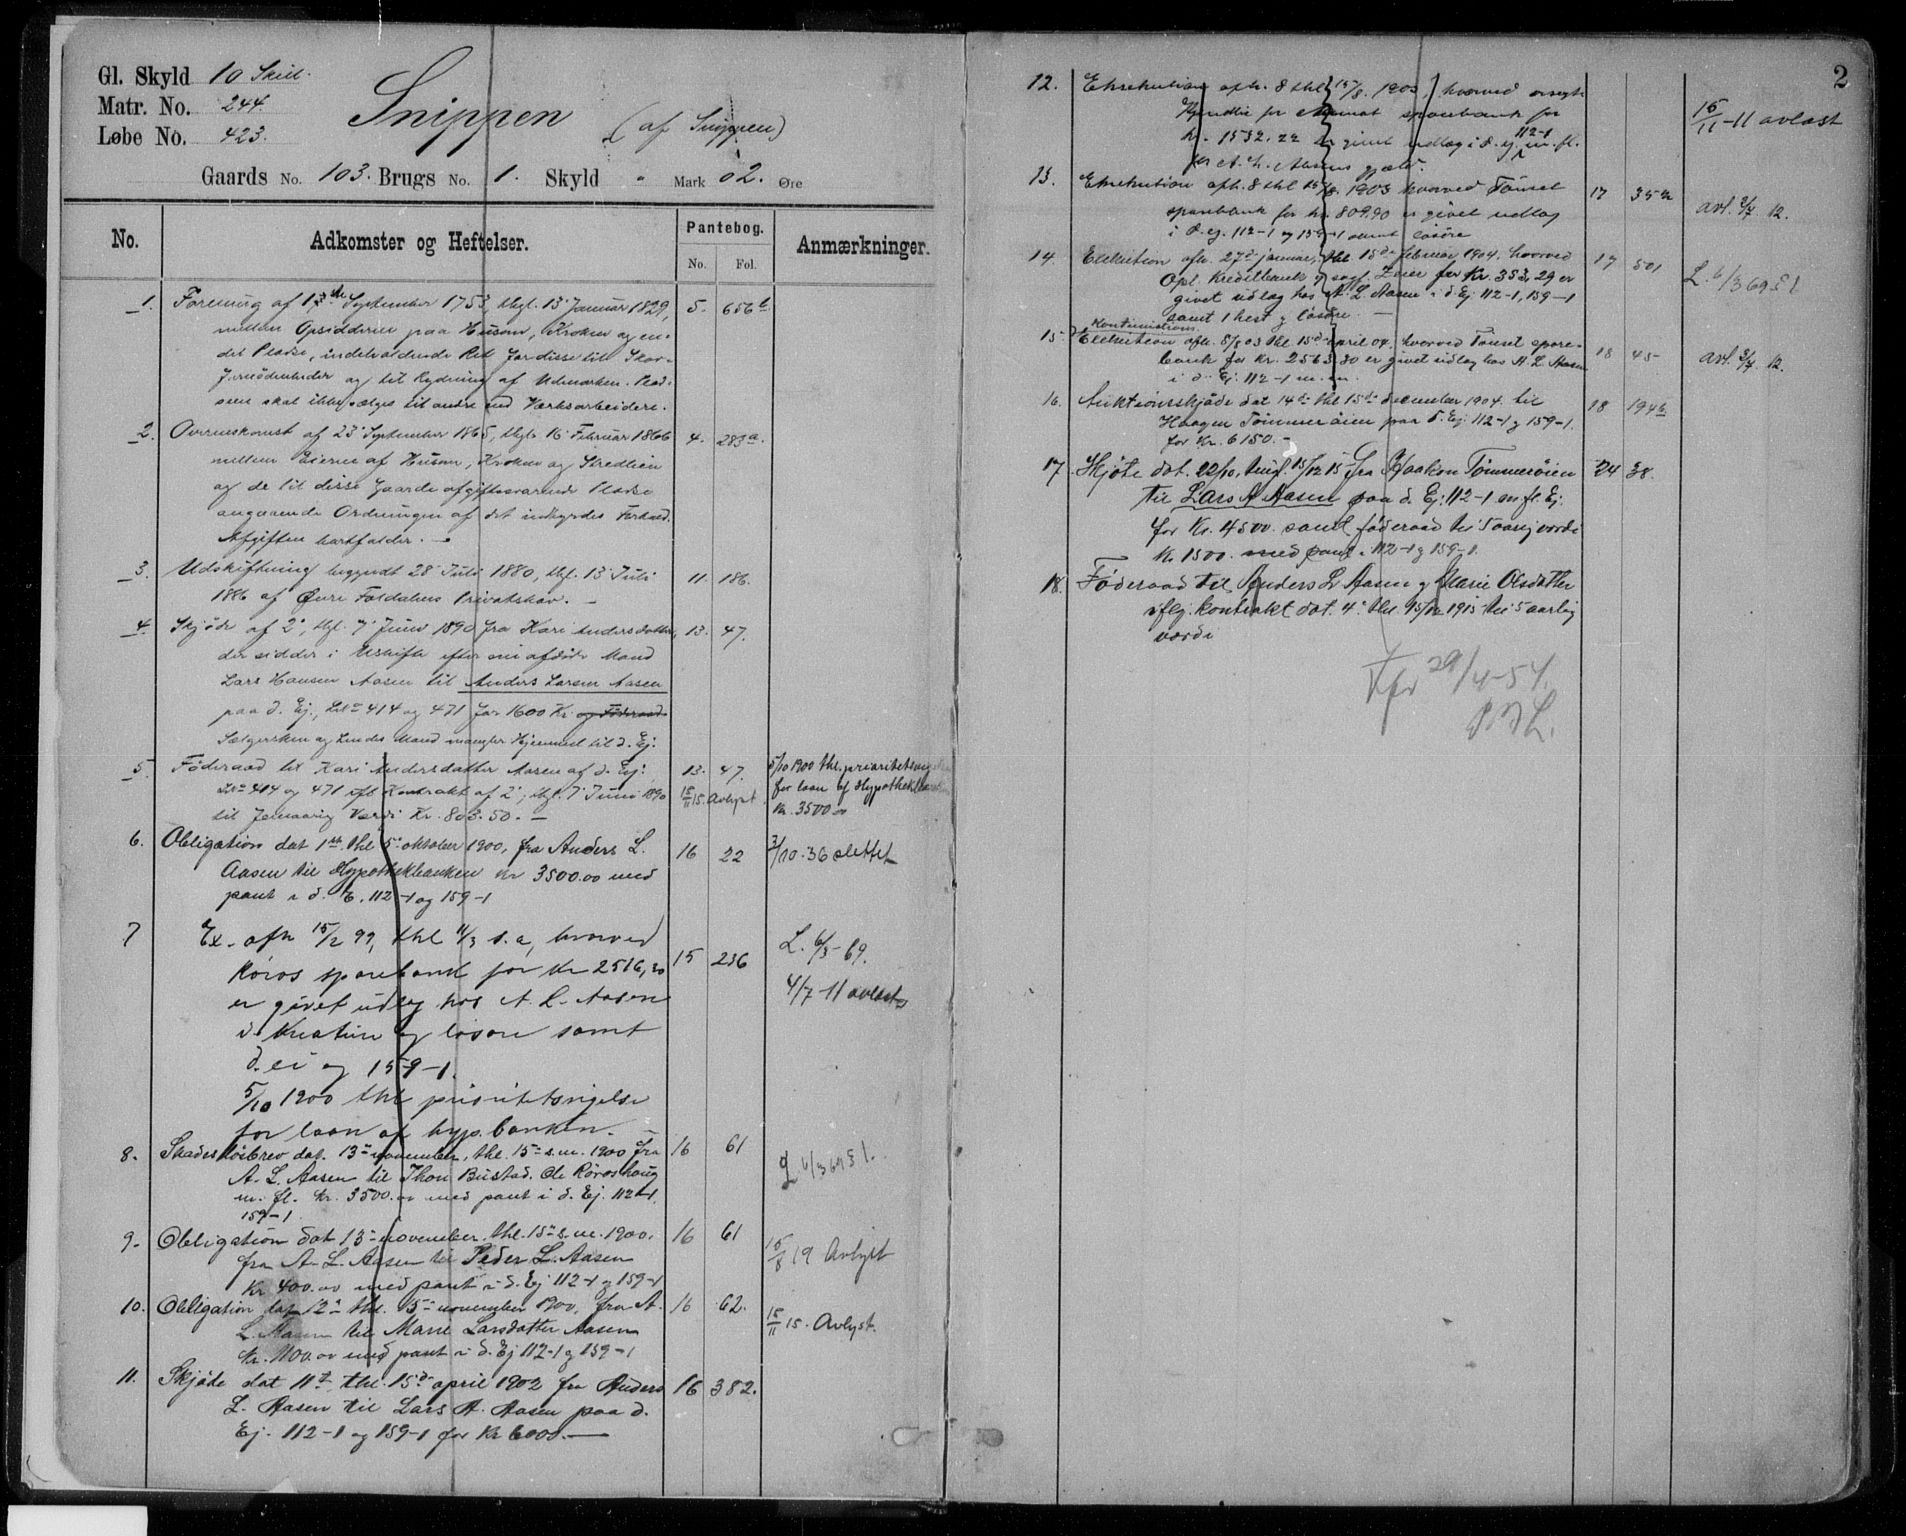 Gl. Skyld 10 Skill.
Matr. No. 244
Løbe No. 423.
Snippen (af Snippen)
Gaards No. 103. Brugs No. 1. Skyld " Mark 02. Øre
No. Adkomster og Heftelser. Pantebog. Anmærkninger.
No. Fol.
1. Forening af 13de September 1753, thgl. 13 Januar 1829, 5. 656b
mellem Opsidderne paa Husom, Kroken og en-
del Pladse, indeholdende Ret for disse til Skov-
fornødenheder og til Rydning af Udmarken. Plad-
sene skal ikke sælges til andre end Værksarbeidere.
2. Overenskomst af 23 September 1865, thgl. 16 Februar 1866 4. 283a.
mellem Eierne af Husom, Kroken og Stredlien
og de til disse Gaarde afgiftssvarende Pladse
angaaende Ordningen af det indbyrdes Forhold.
Afgiften bortfalder. —
3. Udskiftning begyndt 28 Juli 1880, thgl. 13 Juli 11. 186.
1886 af Øvre Foldalens Privatskov. —
4. Skjøde af 2', thgl. 7' Juni 1890 fra Kari Andersdatter, 13. 47.
der sidder i Uskifte efter sin afdøde Mand
Lars Hansen Aasen til Anders Larsen Aasen
paa d. Ej., Lno 414 og 471 for 1600 Kr. og Føderaad
Sælgersken og hendes Mand mangler Hjemmel til d. Ej.
5. Føderaad til Kari Andersdatter Aasen af d. Ej: 13. 47. 5/10 1900 thl. prioritetsvigelse
Lno 414 og 471 efl. Kontrakt af 2', thgl. 7' Juni 1890 15/11 15. Avlyst for laan af Hypothekbanken
til 5enaarig Værdi Kr. 803.50. — Kr. 3500.00
6. Obligation dat 1ste thl 5' oktober 1900, fra Anders L. 16 22 3/10.36 slettet
Aasen til Hypothekbanken Kr 3500.00 med
pant i d. E. 112-1 og 159-1
7 Ex. afh 15/2 99, thl 11/3 s.a, hvorved
Røros sparebank for Kr 2516,20 15 236 L. 6/3-69.
er givet udlæg hos A. L. Aasen 4/7-11 avlæst
i Kreature og løsøre samt
d. ei og 159-1.
5/10 1900 thl prioritetsvigelse
for laan af hyp.banken. —
8. Skadesløsbrev dat. 13' november, thl. 15' s.m. 1900 fra 16 61
A. L. Aasen til Thon Bustad, Ole Røroshaug L 6/3 69
m. fl. Kr. 3500.00 med pant i d. Ej. 112-1
159-1
9. Obligation dat 13' november thl. 15' s.m. 1900. 16 61
fra A. L. Aasen til Peder L. Aasen 15/8 19 Avlyst
Kr 400.00 med pant i d. Ej 112-1 og 159-1
10. Obligation dat 12' thl. 15' november 1900, fra A. 16 62.
L. Aasen til Marie Larsdatter Aasen 15/11 15. Avlyst.
Kr. 1100.00 med pant i d. Ej 112-1 og 159-1
11. Skjøde dat 11', thl. 15' april 1902 fra Anders 16 382.
L. Aasen til Lars A. Aasen paa d.
Ej. 112-1 og 159-1 for Kr 6000.—
2
12. Eksekution afh. 8 thl 15/8. 1903, hvorved
sparebank for 15/11-11 avlæst
kr. 1532.22 er givet udlæg i d. ej. 112-1 m. fl.
for A. L. Aasens gjæld.
13. Eksekution afh. 8 thl 15/8. 1903 hvorved Tønset 17 35
sparebank for kr. 809.90 er givet udlæg avl. 2/7 12.
i d. ej. 112-1 og 159-1 samt løsøre
14. Exekution afh. 27' januar, thl 15' februar 1904, hvorved 17 501
Opl. Kreditbank for Kr. 353,29 er L. 6/3 69
givet udlæg hos A. L. Aasen i d. Ej 112-1, 159-1
samt 1 hest og løsøre. —
15. Exekution afh. 8/8 03 thl. 15' april 04, hvorved Tønset spare- 18 45
bank for Kr. 2563.80 er givet udlæg hos A. L. Aasen avl. 2/7 12.
i d. Ej. 112-1 m.m.
16. Auktionsskjøde dat 14' thl 15' december 1904 til 18 194b
Haagen Tømmerøien paa d. Ej. 112-1 og 159-1.
for Kr. 6150. —
17 Skjøte dat. 22/10, tingl. 15/12 15 fra Haakon Tømmerøien 24 38.
til Lars A Aasen paa d. Ej: 112-1 m fl Ej.
for Kr. 4500. samt føderaad til 5aarig værdi
Kr 1500. med pant i 112-1 og 159-1.
18. Føderaad til Anders L Aasen og Marie Olsdatter
iflg. kontrakt dat. 4' thl 15/12 1915 til 5 aarlig
værdi
29/4-54.